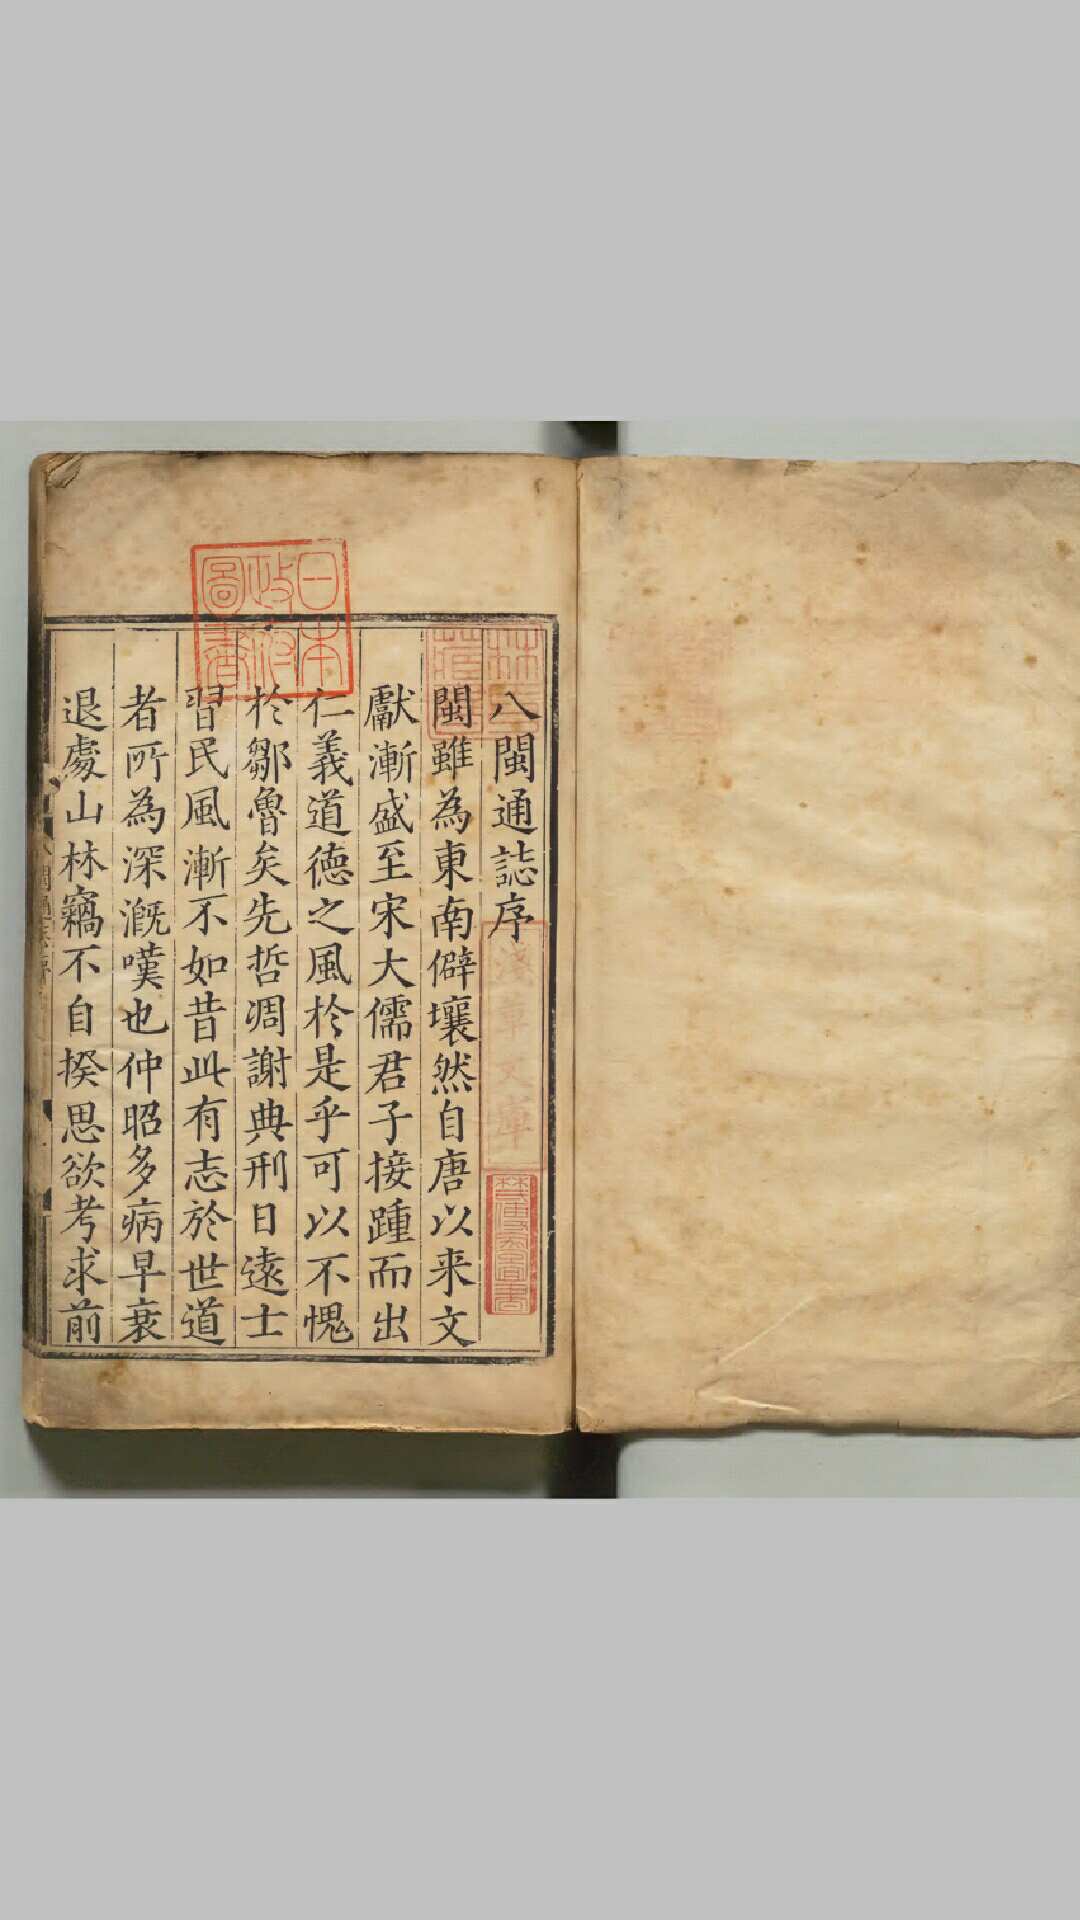 八閩通誌序
閩雖為東南僻壤然自唐以来文
獻漸盛至宋大儒君子接踵而出
仁義道德之風於是乎可以不愧
於鄒魯矣先哲凋謝典刑日遠士
習民風漸不如昔此有志於世道
者所為深漑嘆也仲昭多病早衰
退處山林竊不自揆思欲考求前
日本
政府
圖書
淺草文庫